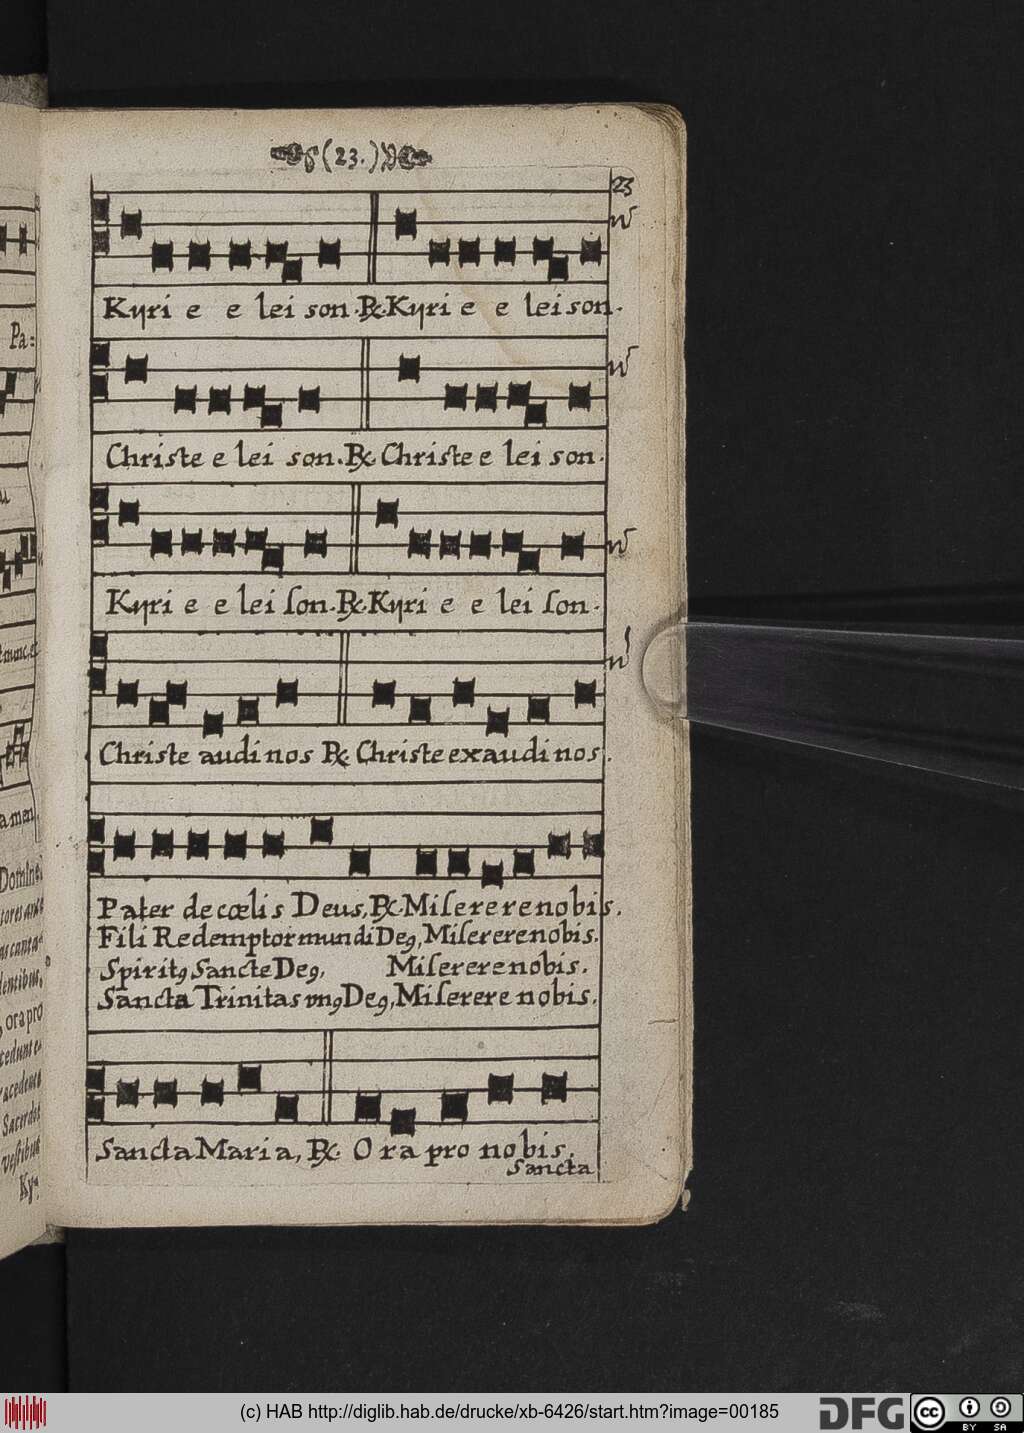 (23.)
23
Kyri e e lei son. ℟. Kyri e e lei son.
Christe e lei son. ℟. Christe e lei son.
Kyri e e lei ſon. ℟. Kyri e e lei ſon.
Christe audi nos ℟. Christe exaudi nos.
Pater de cœlis Deus, ℟. Miſerere nobis.
Fili Redemptor mundi Deꝰ, Miſerere nobis.
Spiritꝰ Sancte Deꝰ, Miſerere nobis.
Sancta Trinitas vnꝰ Deꝰ, Miſerere nobis.
Sancta Maria, ℟. Ora pro nobis.
Sancta
Pa=
amen
Domine
ora pro
Ky
(c) HAB http://diglib.hab.de/drucke/xb-6426/start.htm?image=00185
DFG
cc
BY SA